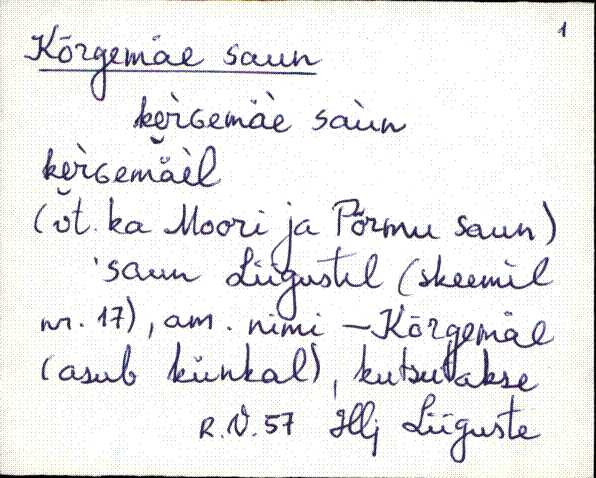 1
Kõrgemäe saun
kèrGemäè saùn
kèrGemäèl
(öt. ka Moori ja Põrmu saun)
'saun Liigustel (skeemil
nr. 17), am. nimi – Kõrgemäe
(asub künkal), kutsutakse
R.N.57 Jllj Liiguste